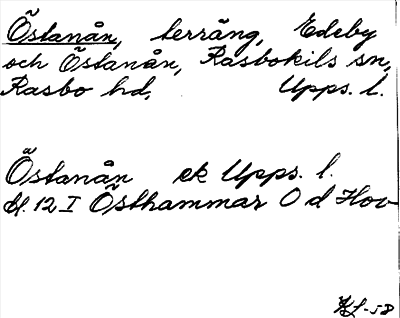 Östanån, terräng, Edeby
och Östanån, Rasbokils sn,
Rasbo hd, Upps. l.
Östanån ek Upps. l.
bl. 12 I Östhammar O d Hov
-58